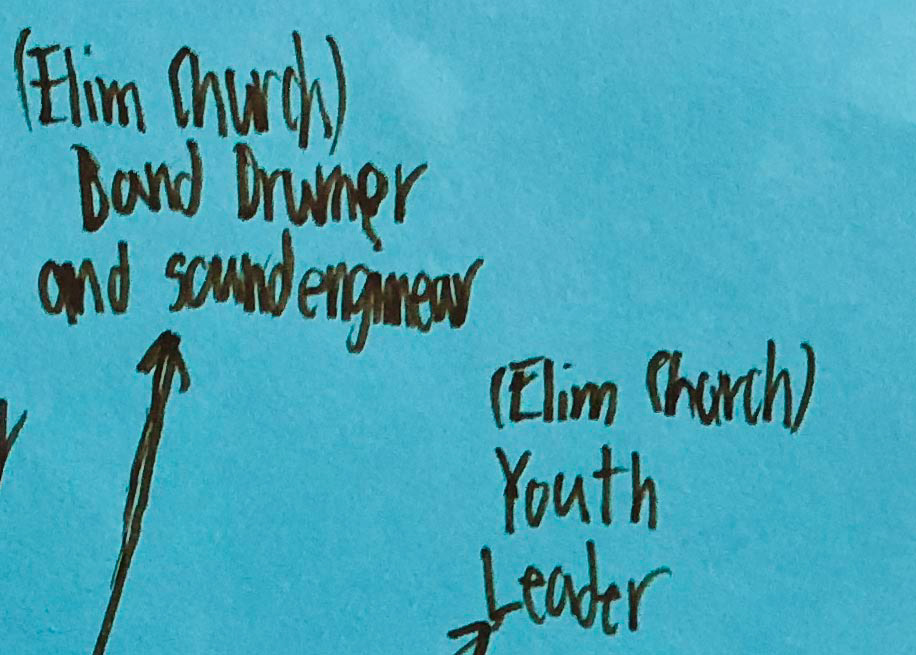 (Elim Church)
Band Drumer
and sound enginear
(Elim Church)
Youth
Leader